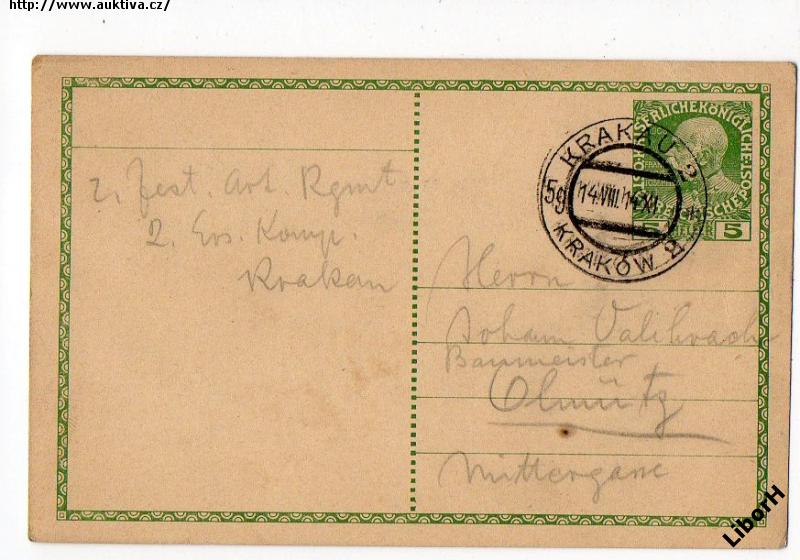 http://www.auktiva.cz/
KAISERLICHE KÖNIGLICHE
5 5
KRAKAU 2
5g 14.VIII.14 XI
KRAKÓW 2
2. Fest. Art. Rgmt
2. Ers. Komp.
Krakau
Herrn
Johann
Baumeister
Olmütz
Mittergasse
LiborH